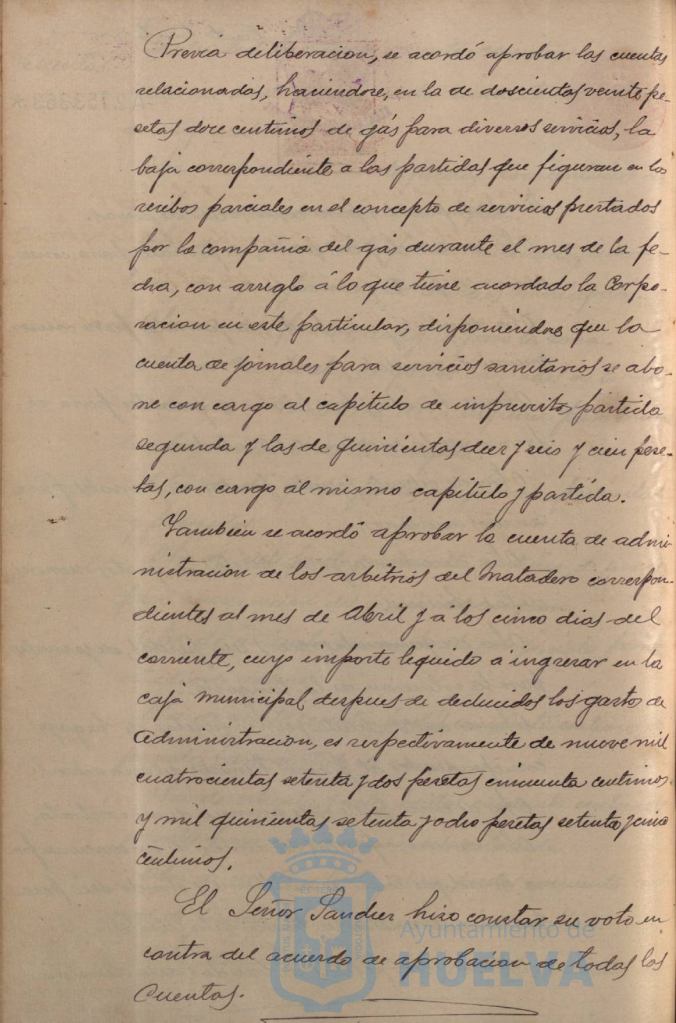 Previa deliberacion, se acordó aprobar las cuentas
relacionadas, haciendose, en la de doscientas veinte pe-
setas doce centimos de gás para diversos servicios, la
baja correspondiente a las partidas que figuran en los
recibos parciales en el concepto de servicios prestados
por la compañia del gas durante el mes de la fe-
cha, con arreglo á lo que tiene acordado la Corpo-
racion en este particular, disponiendose que la
cuenta de jornales para servicios sanitarios se abo-
ne con cargo al capitulo de imprevistos partida
segunda y las de quinientas diez y seis y cien pese-
tas, con cargo al mismo capitulo y partida.
Tambien se acordó aprobar la cuenta de admi-
nistracion de los arbitrios del Matadero correspon-
dientes al mes de Abril y á los cinco dias del
corriente, cuyo importe liquido a ingresar en la
caja municipal, despues de deducidos los gastos de
Administracion, es respectivamente de nueve mil
cuatrocientas setenta y dos pesetas cincuenta centimos
y mil quinientas setenta y ocho pesetas setenta y cinco
centimos.
El Señor Sanchez hizo constar su voto en
contra del acuerdo de aprobacion de todas las
cuentas.
Ayuntamiento de
HUELVA